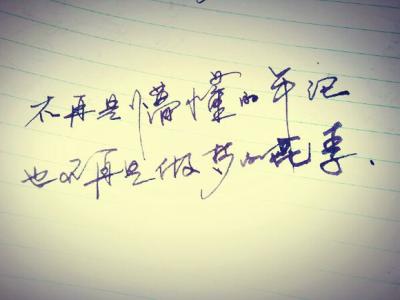 不再是懵懂的年纪
也不再是做梦的花季、